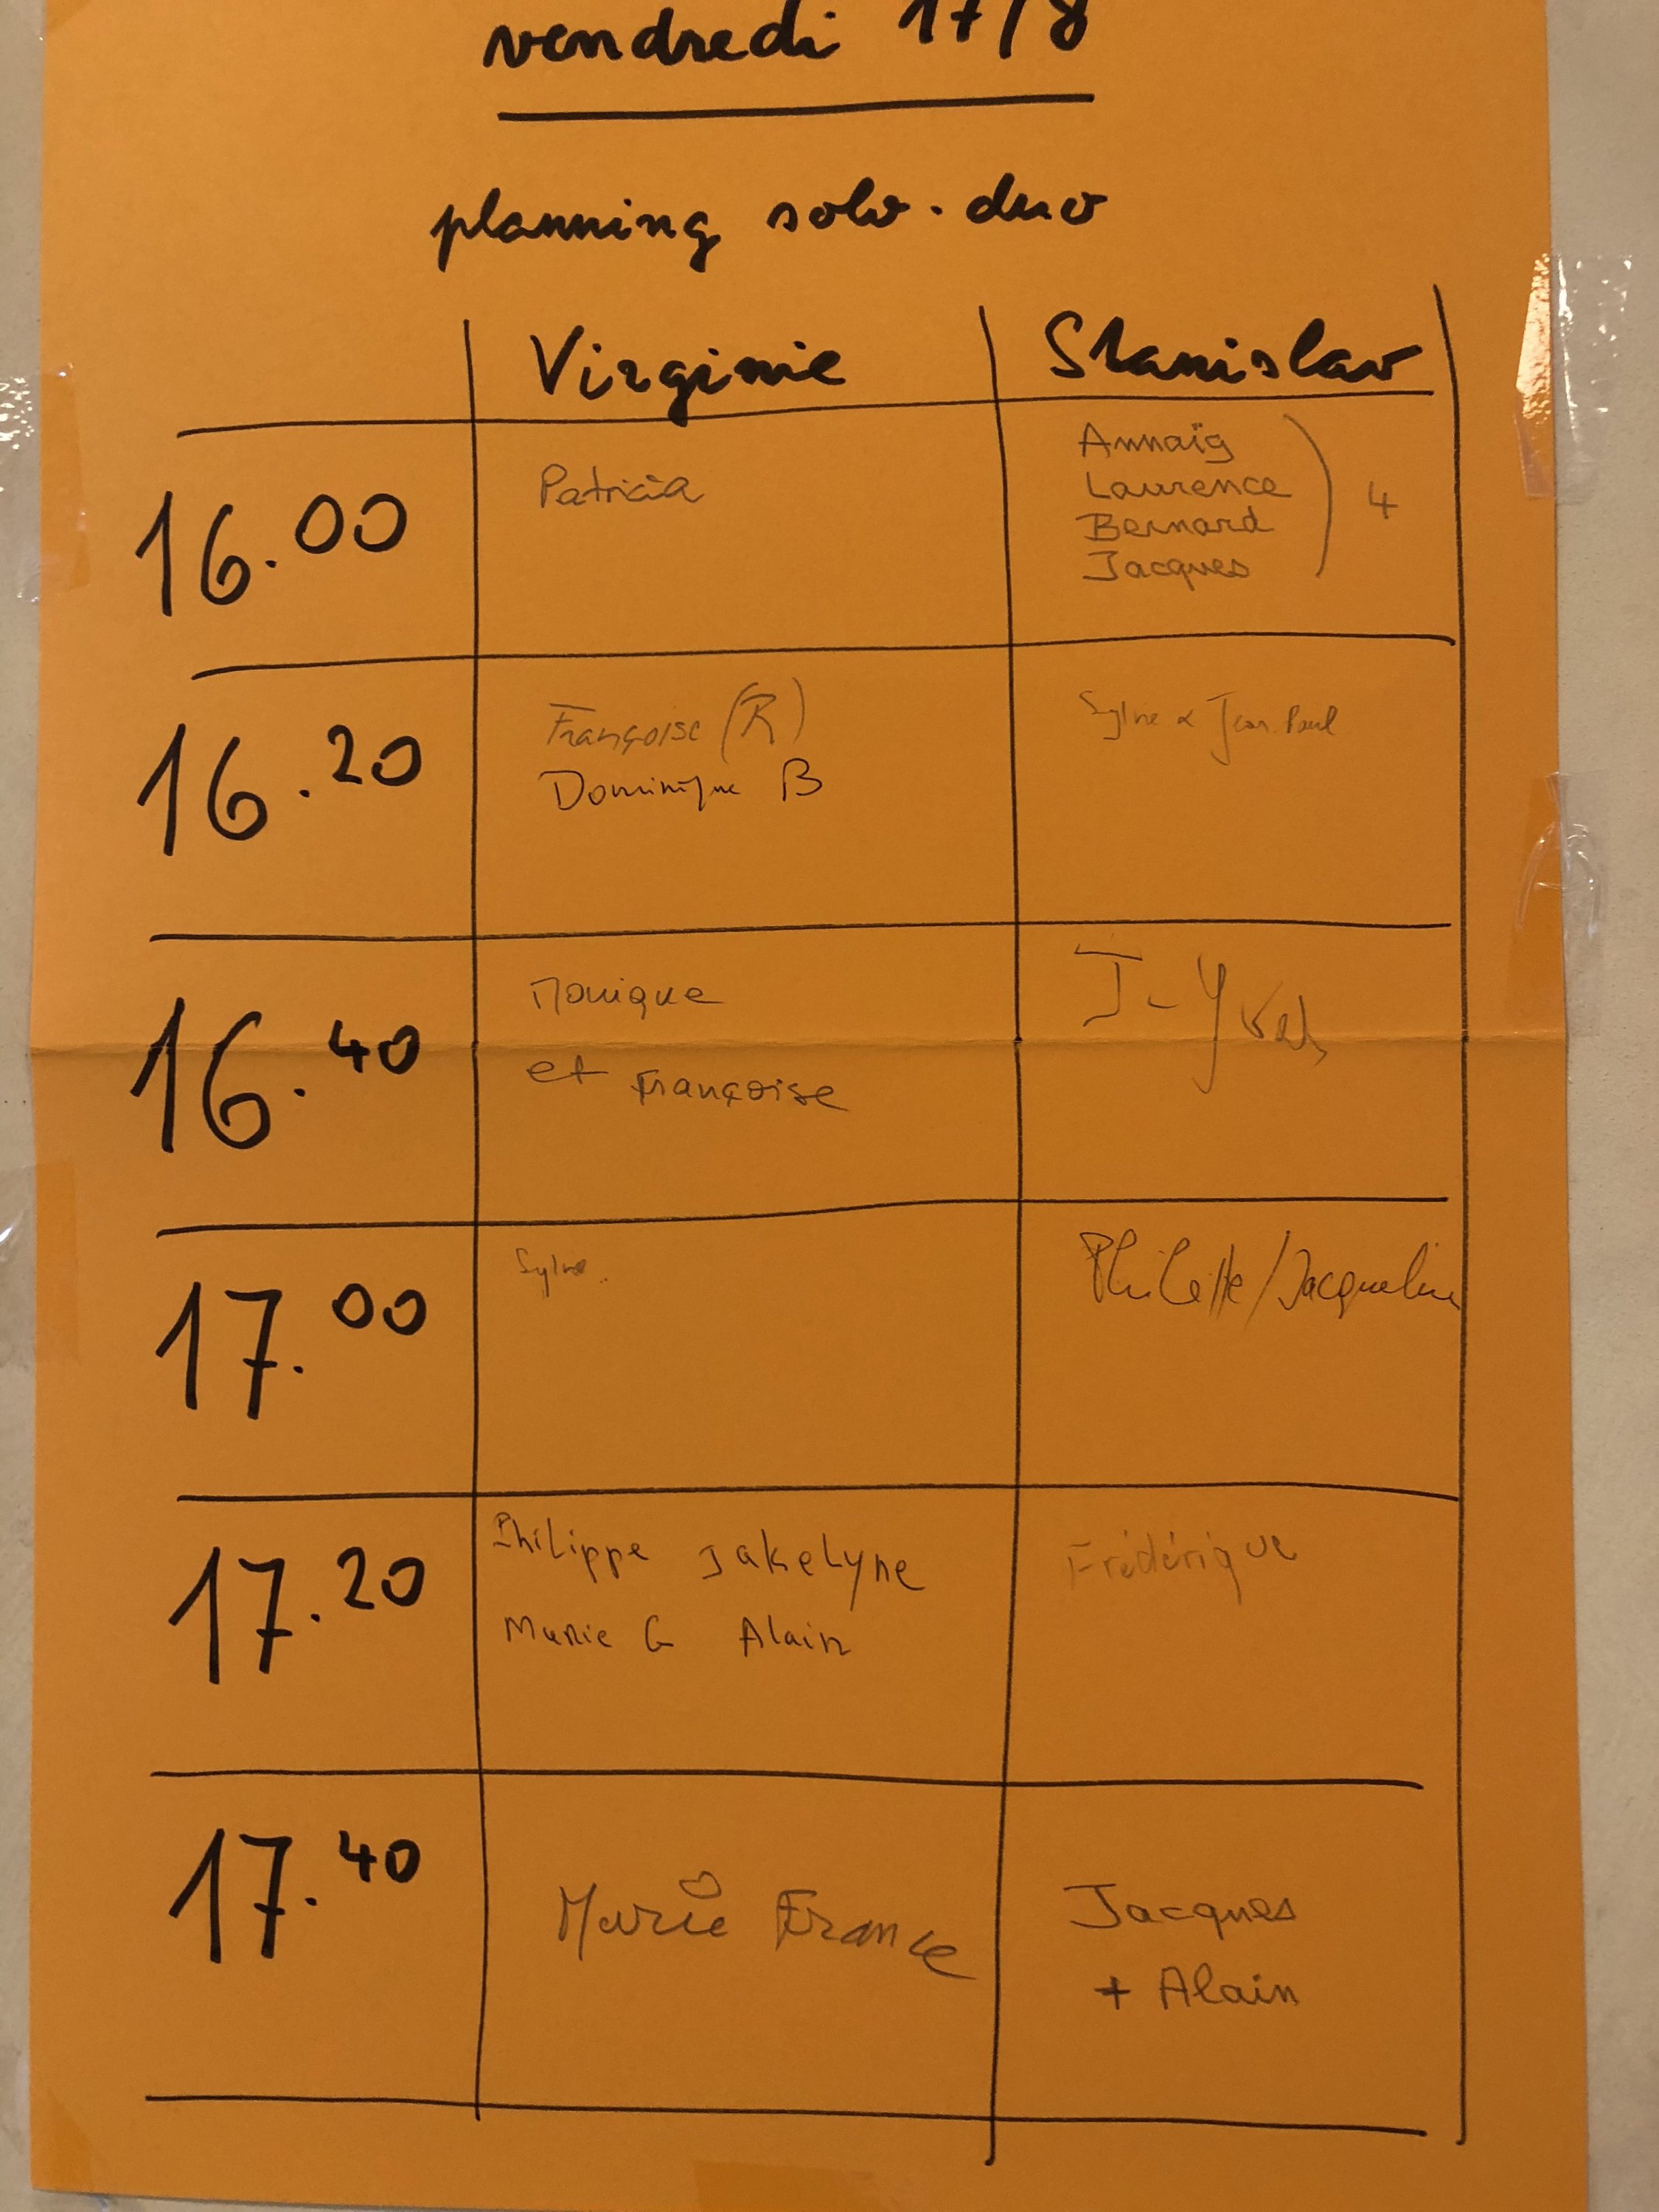 vendredi 17/8
planning solo. duo
Virginie Stanislav
16.00 Patricia Annaïg
Laurence
Bernard
Jacques
) 4
16.20 Françoise (R) Sylvie & Jean-Paul
Dominique B
16.40 Monique J-Yves
et Françoise
17.00 Sylvie /Jacqueline
17.20 Philippe Jakelyne Frédérique
Marie G Alain
17.40 Marie France Jacques
+ Alain